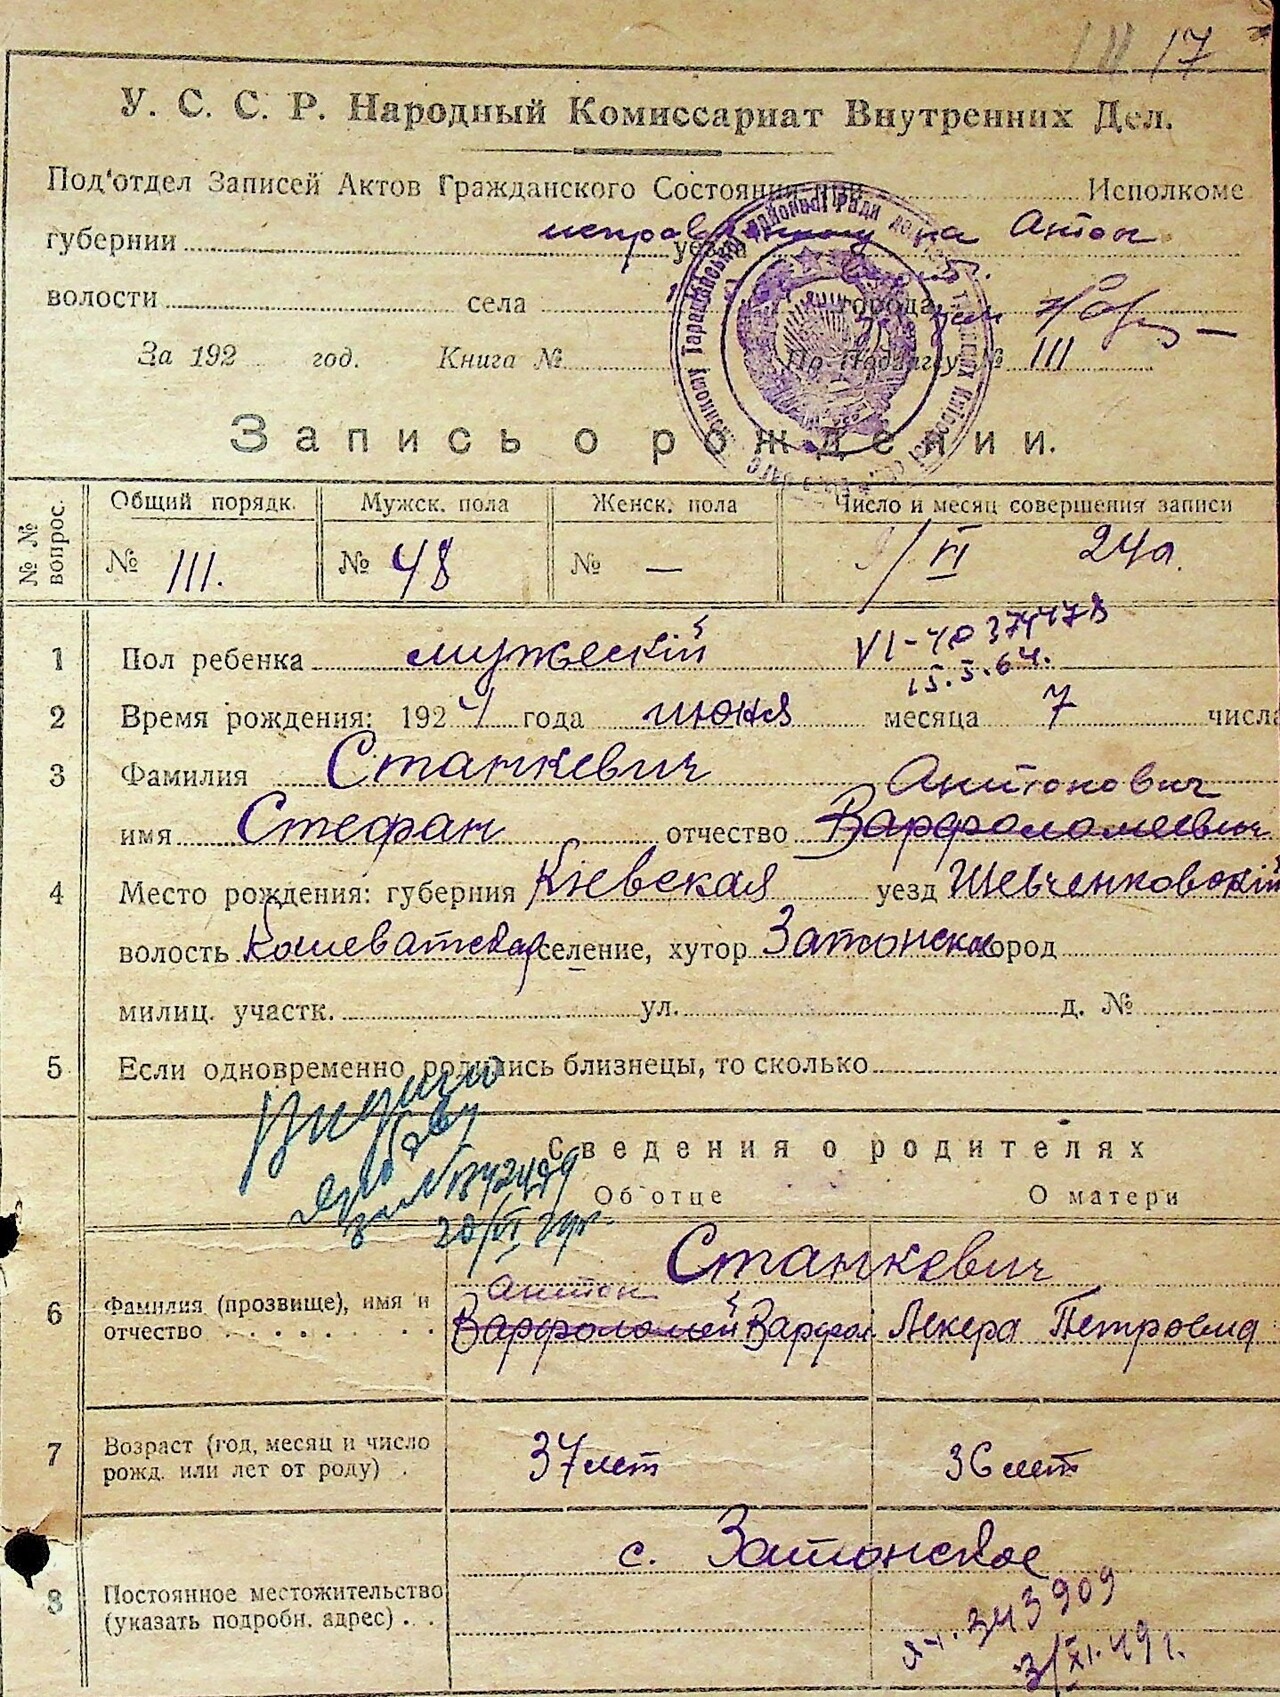 17
У. С. С. Р. Народный Комиссариат Внутренних Дел.
Под'отдел Записей Актов Гражданского Состояния при Исполкоме
губернии уезда на Антон
волости села города
За 192 год. Книга № По Подлиннику № III
Запись о рождении.
№ № вопрос. Общий порядк. Мужск. пола Женск. пола Число и месяц совершения записи
№ 111. № 48 № — 9/VI 24г.
1 Пол ребенка мужеский VI-
15.5.64.
2 Время рождения: 1924 года июня месяца 7 числа
3 Фамилия Станкевич Антонович
имя Стефан отчество Варфоломеевич
4 Место рождения: губерния Киевская уезд Шевченковский
волость Кошеватская селение, хутор Затонск город
милиц. участк. ул. д. №
5 Если одновременно родились близнецы, то сколько
Сведения о родителях
Об отце О матери
Станкевич
Антон
6 Фамилия (прозвище), имя и Варфоломей Варфол. Лекера Петровна
отчество
7 Возраст (год, месяц и число 37 лет 36 лет
рожд. или лет от роду)
с. Затонское
8 Постоянное местожительство
(указать подробн. адрес)
343909
3/XI.49г.